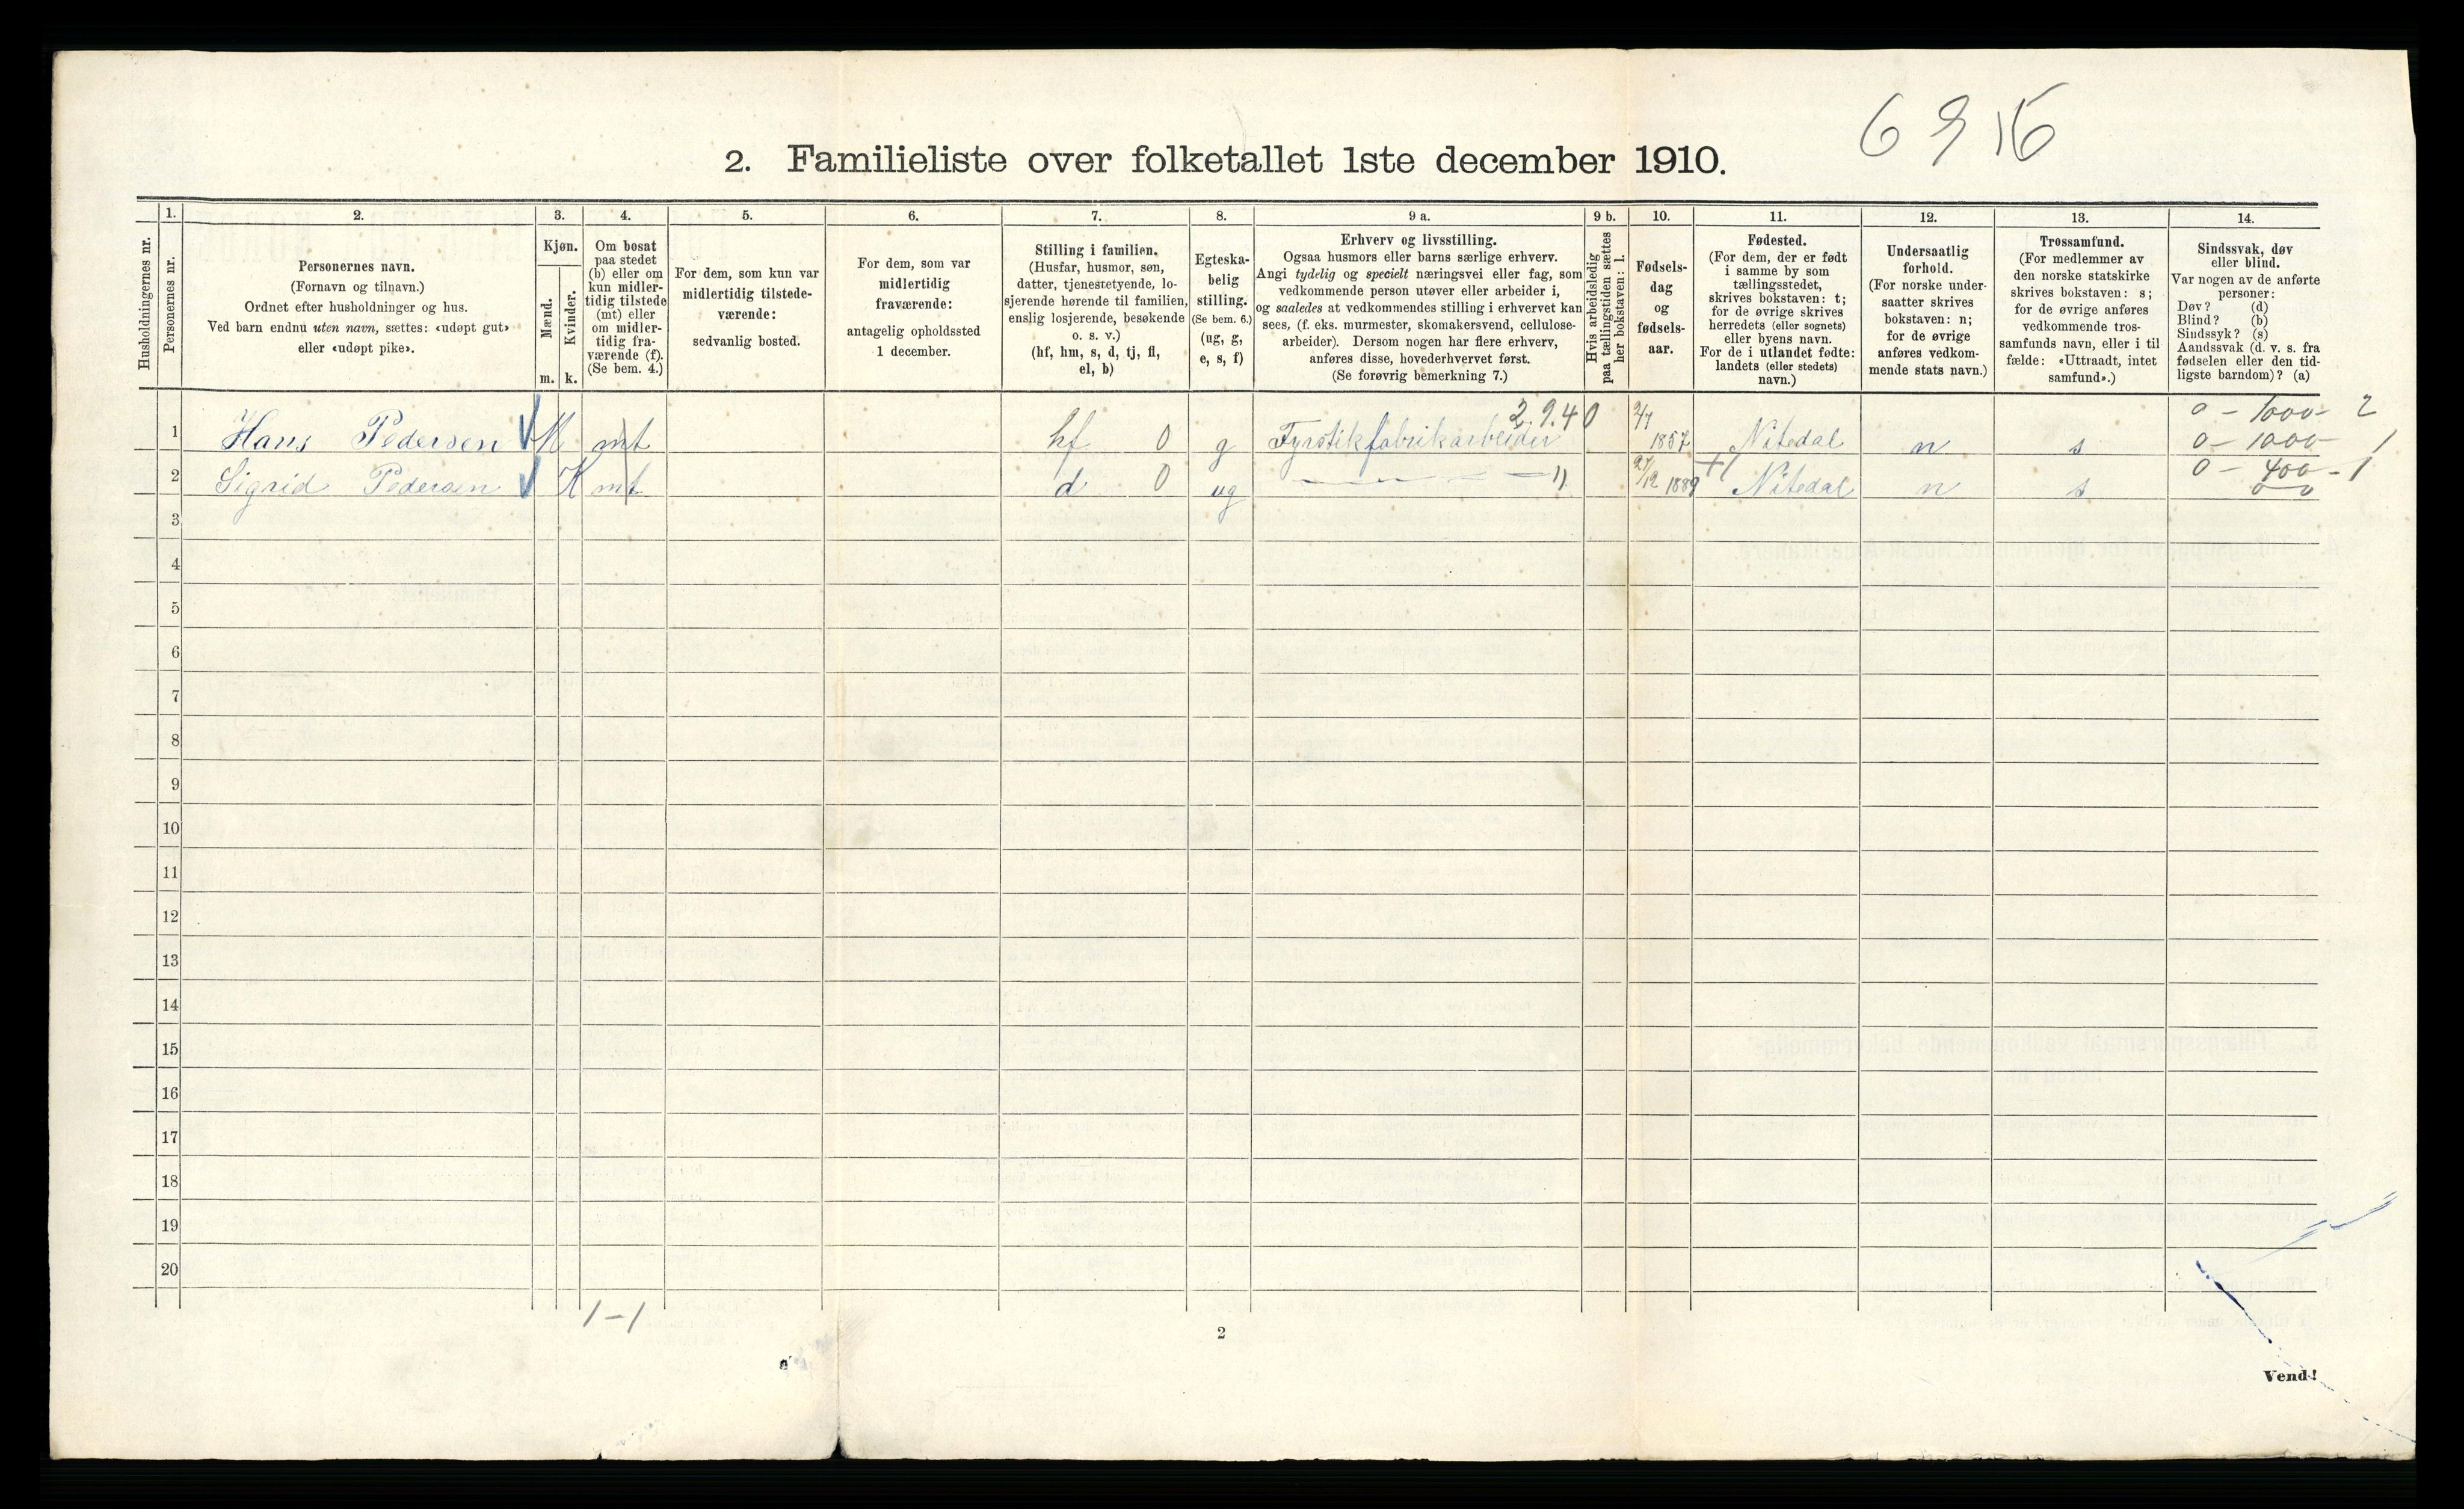 6916
2. Familieliste over folketallet 1ste december 1910.
Husholdningernes nr.
1.
Personernes nr.
2.
Personernes navn.
(Fornavn og tilnavn.)
Ordnet efter husholdninger og hus.
Ved barn endnu uten navn, sættes: «udøpt gut»
eller «udøpt pike».
3.
Kjøn.
Mænd.
Kvinder.
m. k.
4.
Om bosat
paa stedet
(b) eller om
kun midler-
tidig tilstede
(mt) eller
om midler-
tidig fra-
værende (f).
(Se bem. 4.)
5.
For dem, som kun var
midlertidig tilstede-
værende:
sedvanlig bosted.
6.
For dem, som var
midlertidig
fraværende:
antagelig opholdssted
1 december.
7.
Stilling i familien.
(Husfar, husmor, søn,
datter, tjenestetyende, lo-
sjerende hørende til familien,
enslig losjerende, besøkende
o. s. v.)
(hf, hm, s, d, tj, fl,
el, b)
8.
Egteska-
belig
stilling.
(Se bem. 6.)
(ug, g,
e, s, f)
9 a.
Erhverv og livsstilling.
Ogsaa husmors eller barns særlige erhverv.
Angi tydelig og specielt næringsvei eller fag, som
vedkommende person utøver eller arbeider i,
og saaledes at vedkommendes stilling i erhvervet kan
sees, (f. eks. murmester, skomakersvend, cellulose-
arbeider). Dersom nogen har flere erhverv,
anføres disse, hovederhvervet først.
(Se forøvrig bemerkning 7.)
9 b.
Hvis arbeidsledig
paa tællingstiden sættes
her bokstaven: l.
10.
Fødsels-
dag
og
fødsels-
aar.
11.
Fødested.
(For dem, der er født
i samme by som
tællingsstedet,
skrives bokstaven: t;
for de øvrige skrives
herredets (eller sognets)
eller byens navn.
For de i utlandet fødte:
landets (eller stedets)
navn.)
12.
Undersaatlig
forhold.
(For norske under-
saatter skrives
bokstaven: n;
for de øvrige
anføres vedkom-
mende stats navn.)
13.
Trossamfund.
(For medlemmer av
den norske statskirke
skrives bokstaven: s;
for de øvrige anføres
vedkommende tros-
samfunds navn, eller i til-
fælde: «Uttraadt, intet
samfund».)
14.
Sindssvak, døv
eller blind.
Var nogen av de anførte
personer:
Døv? (d)
Blind? (b)
Sindssyk? (s)
Aandssvak (d. v. s. fra
fødselen eller den tid-
ligste barndom)? (a)
2.9.40 0 - 1000 - 2
1 Hans Pedersen M mt hf 0 g Fyrstikfabrikarbeider 2/7 1857 Nitedal n s 0 - 1000 - 1
2 Sigrid Pedersen K mt d 0 ug — " — 1) 27/12 1889 Nitedal n s 0 - 400 - 1
3
4
5
6
7
8
9
10
11
12
13
14
15
16
17
18
19
20
1-1
2
Vend!